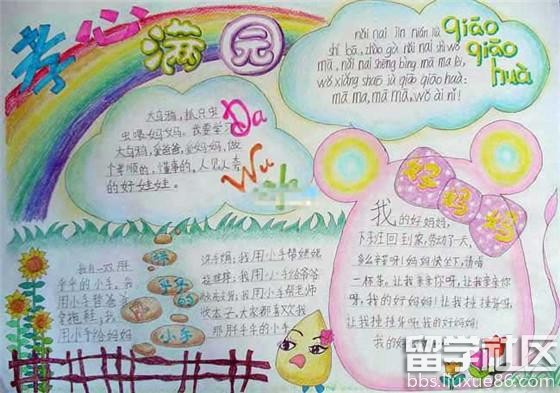 孝心满园
nǎi nai jīn nián liù
shí bā, zhǎo gà
mā, nǎi nai shēng bìng mā ma
wǒ xiǎng shuō jù qiāo qiāo huà:
mā ma, mā ma, wǒ ài nǐ!
qiāo
qiāo
huà
大乌鸦,抓只虫
虫喂妈妈。我要学
大乌鸦,爱爸爸,爱妈妈,做
个孝顺的、懂事的、人见人夸
的好娃娃。
Da
Wu
好妈妈
我的好妈妈,
下班回到家,劳动了一天,
多么辛苦呀!妈妈快坐下,请喝
一杯茶。让我亲亲你呀,让我亲亲你
呀,我的好妈妈!
我的好妈妈!
我有一双胖
乎乎的小手,我
用小手替爸爸
拿拖鞋,我
用小手给妈妈
洗手绢;我用小手帮姥姥
我用小手给爷爷
我用小手帮老师
收本子,大家都喜欢我
那胖乎乎的小手。
胖
乎乎
的
小手
留学社区
bbs.liuxue86.com